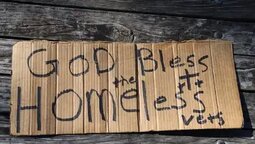 GOD Bless
the +
HOMeless
vets